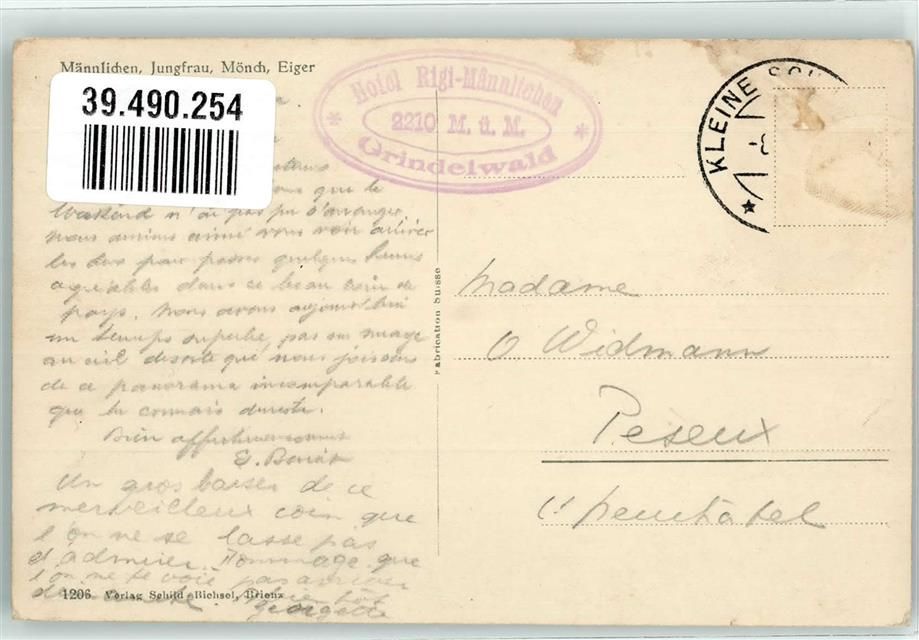 Männlichen, Jungfrau, Mönch, Eiger
39.490.254
Hotel Rigi-Männlichen
2210 M. ü. M.
Grindelwald
KLEINE SCH
que le
Weekend n'ai pas pu s'arranger
nous aurions aimé vous voir arriver
les deux pour passer quelques heures
agréables dans ce beau coin de
pays. Nous avons aujourd'hui
un temps superbe, pas un nuage
au ciel de sorte que nous jouissons
de ce panorama incomparable
que tu connais
Bien affectueusement
Un gros baiser de ce
merveilleux coin que
l'on ne se lasse pas
d'admirer. Hommage que
l'on ne te voie pas arriver
Georgette
1206 Verlag Schild-Bichsel, Brienz
Fabrication Suisse
Madame
O Widmann
Peseux
s/ Neuchâtel